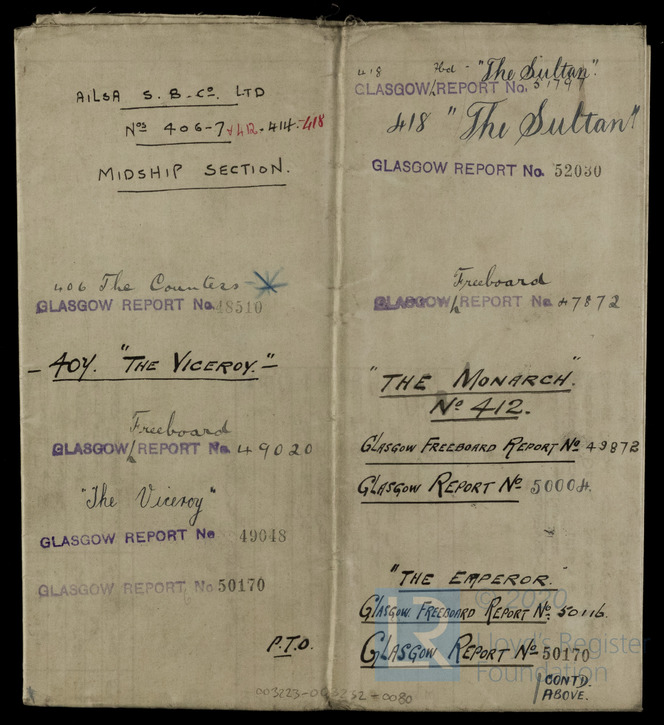 AILSA S. B. Co. LTD
Nos 406-7 & 412 - 414 - 418
MIDSHIP SECTION.
406 The Countess
GLASGOW REPORT No. 48510
- 407. "THE VICEROY." -
Freeboard
GLASGOW REPORT No. 49020
"The Viceroy"
GLASGOW REPORT No 49048
GLASGOW REPORT No 50170
P.T.O.
003223-003232-0080
418 Fbd - "The Sultan".
GLASGOW REPORT No. 51797
418 "The Sultan"
GLASGOW REPORT No. 52030
Freeboard
GLASGOW REPORT No. 47872
"THE MONARCH".
No 412.
GLASGOW FREEBOARD REPORT No 49872
GLASGOW REPORT No 50004.
"THE EMPEROR."
GLASGOW. FREEBOARD REPORT No. 50116.
GLASGOW REPORT No 50170
CONTD.
ABOVE.
© 2020
LR
Lloyd's Register
Foundation